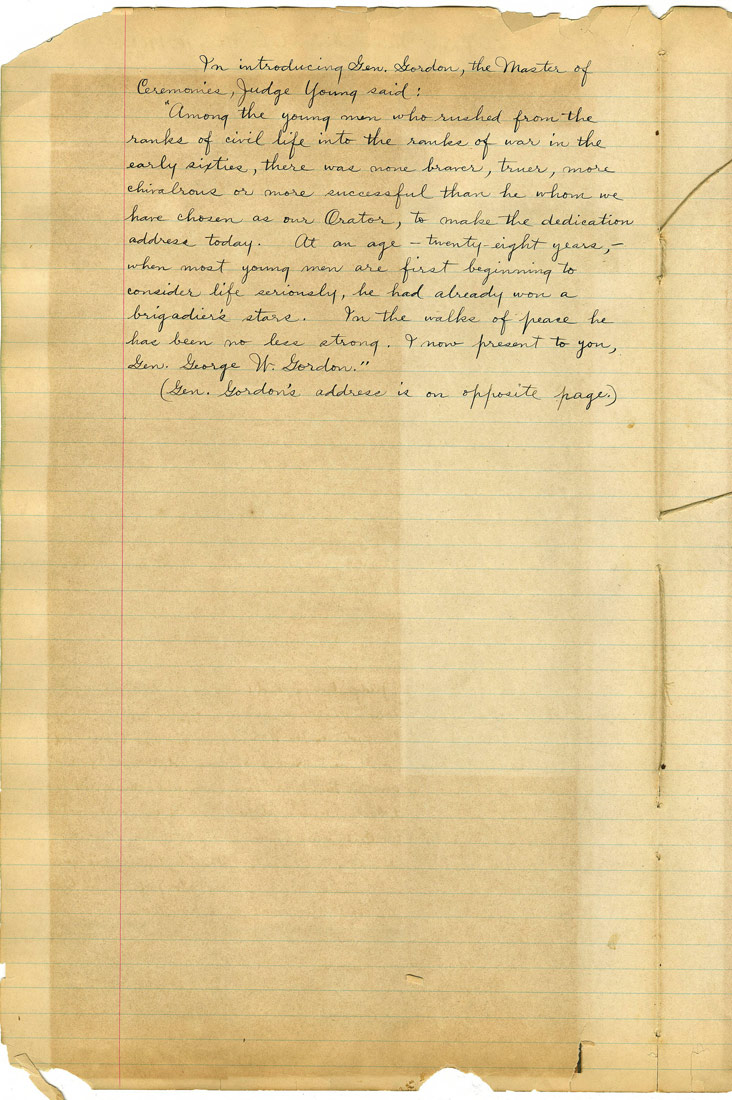 In introducing Gen. Gordon, the Master of
Ceremonies, Judge Young said:
"Among the young men who rushed from the
ranks of civil life into the ranks of war in the
early sixties, there was none braver, truer, more
chivalrous or more successful than he whom we
have chosen as our Orator, to make the dedication
address today. At an age – twenty-eight years, –
when most young men are first beginning to
consider life seriously, he had already won a
brigadier's stars. In the walks of peace he
has been no less strong. I now present to you,
Gen. George W. Gordon."
(Gen. Gordon's address is on opposite page.)